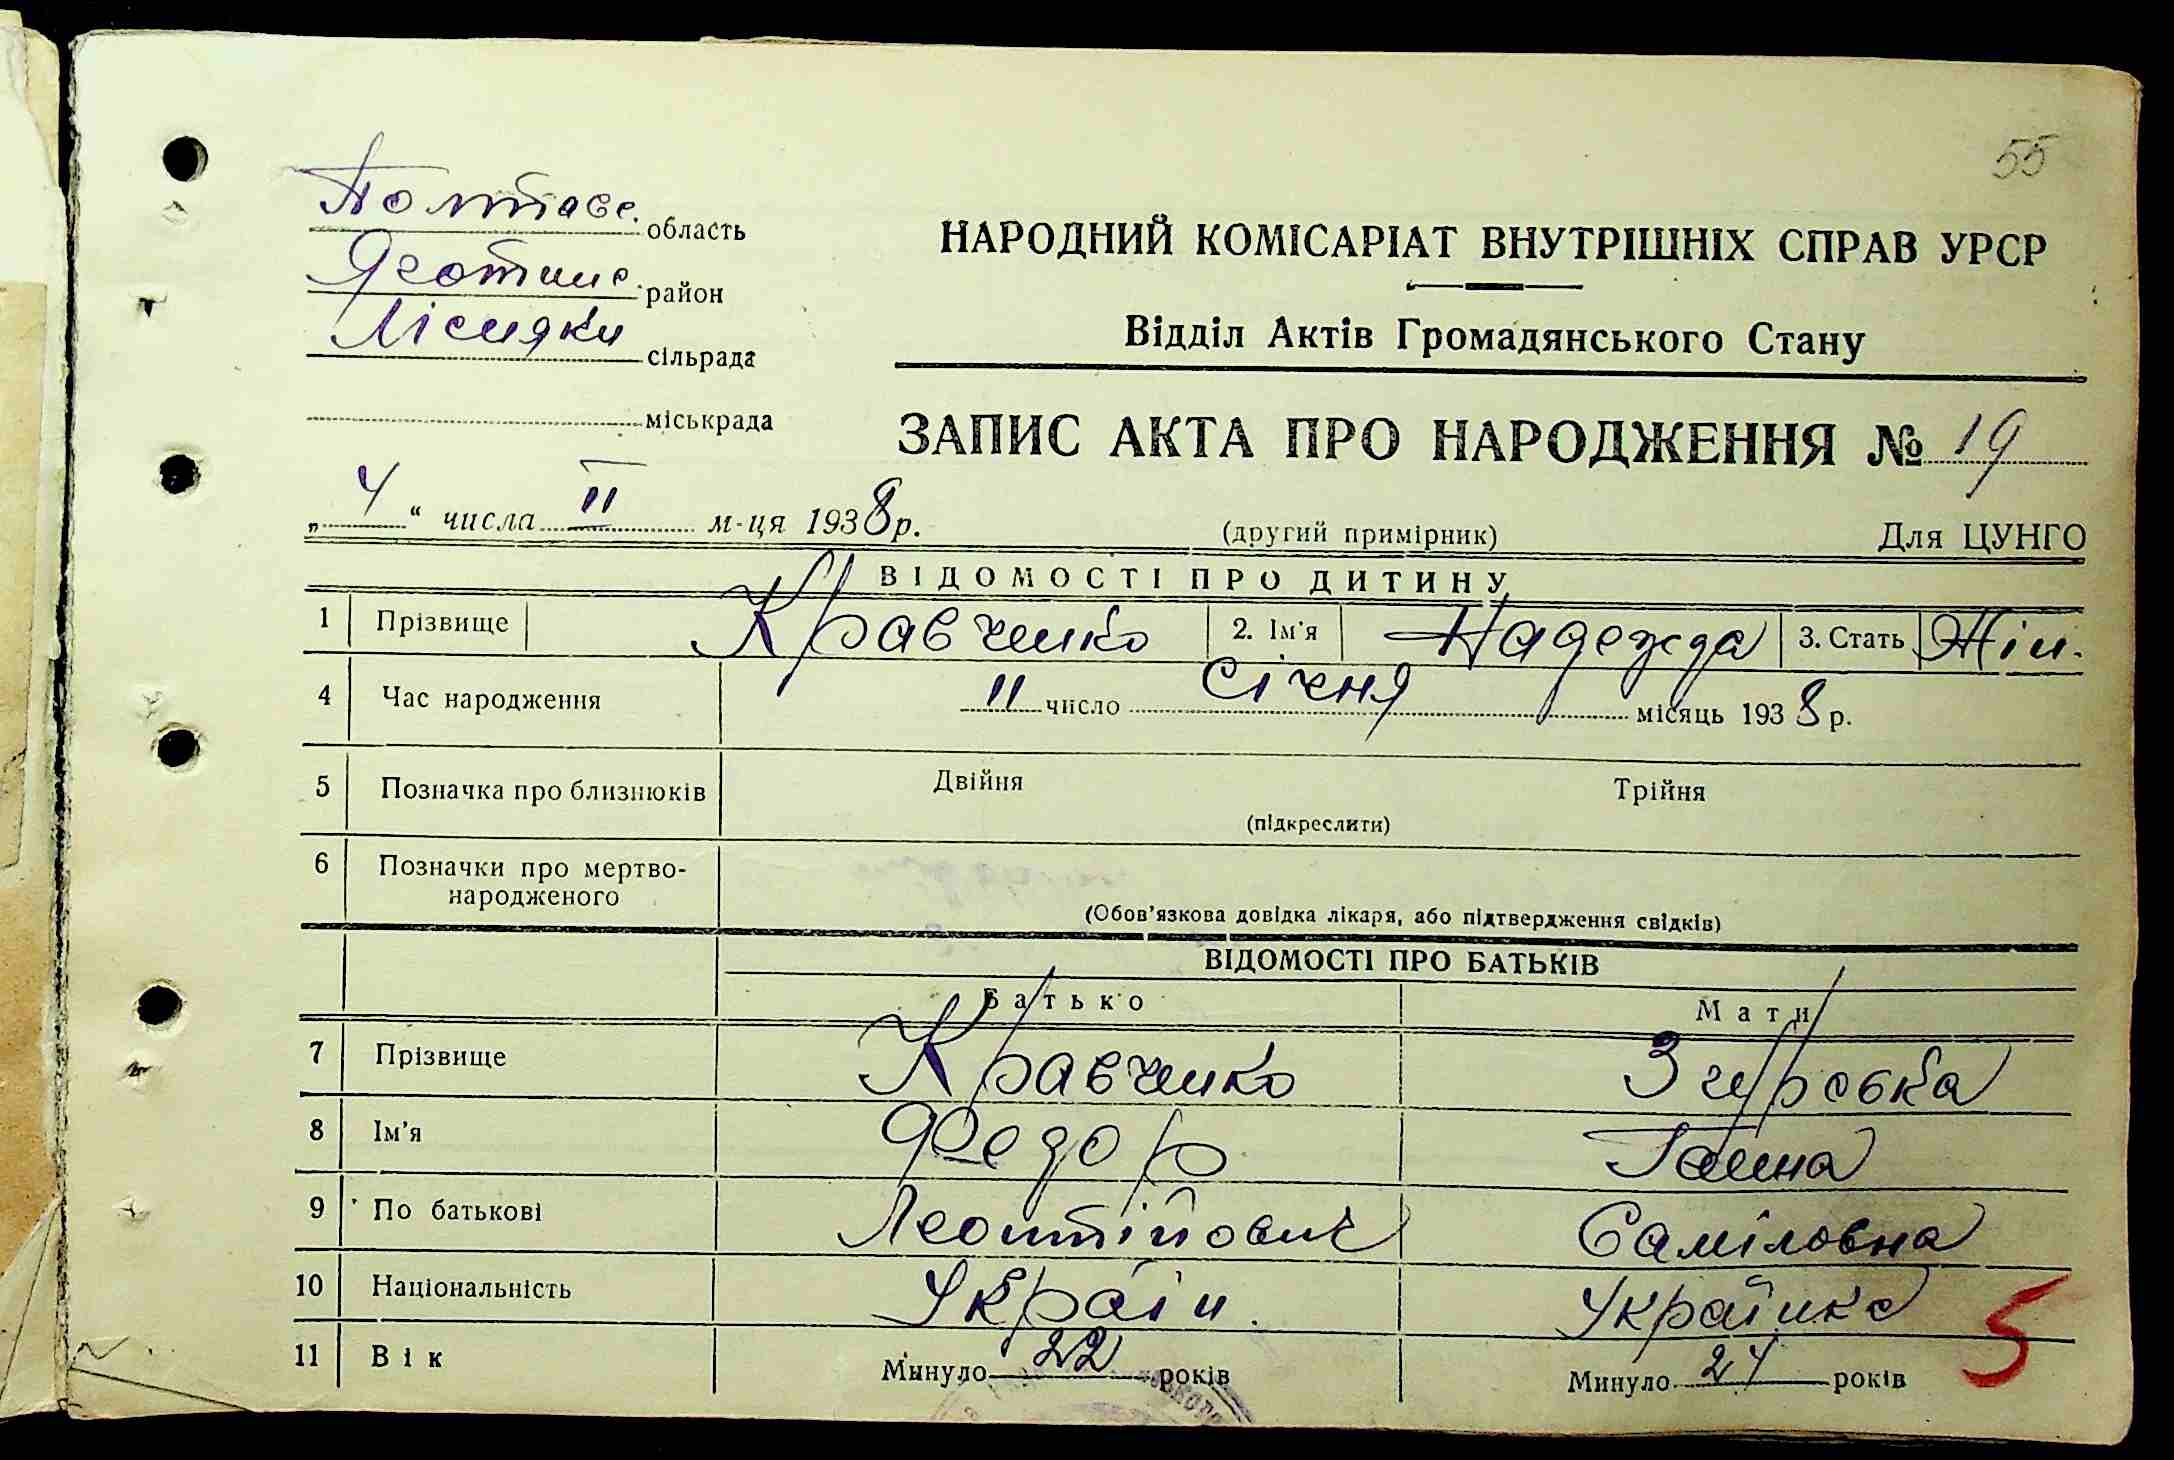 55
Полтавс. область
Яготинс. район
Лісняки сільрада
міськрада
НАРОДНИЙ КОМІСАРІАТ ВНУТРІШНІХ СПРАВ УРСР
Відділ Актів Громадянського Стану
ЗАПИС АКТА ПРО НАРОДЖЕННЯ № 19
„4“ числа II м-ця 1938 р.
(другий примірник) Для ЦУНГО
ВІДОМОСТІ ПРО ДИТИНУ
1 Прізвище Кравченко 2. Ім'я Надежда 3. Стать Жін.
4 Час народження 11 число Січня місяць 1938 р.
5 Позначка про близнюків Двійня Трійня
(підкреслити)
6 Позначки про мертво-
народженого
(Обов'язкова довідка лікаря, або підтвердження свідків)
ВІДОМОСТІ ПРО БАТЬКІВ
Батько Мати
7 Прізвище Кравченко Згуровка
8 Ім'я Федор Ганна
9 По батькові Леонтійович Саміловна
10 Національність Україн. Українка
11 Вік Минуло 22 років Минуло 24 років
5